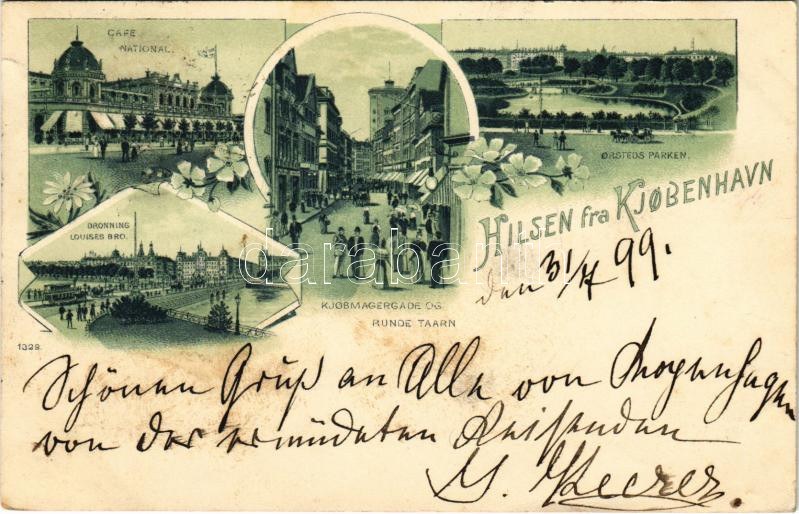 CAFE
NATIONAL.
ØRSTEDS PARKEN.
DRONNING
LOUISES BRO.
HILSEN fra KJØBENHAVN
den 31/ 99.
KJØBMAGERGADE OG
RUNDE TAARN
1329.
Schönen Gruß an Alle von
von der ermüdeten Reisenden
darabanth.com